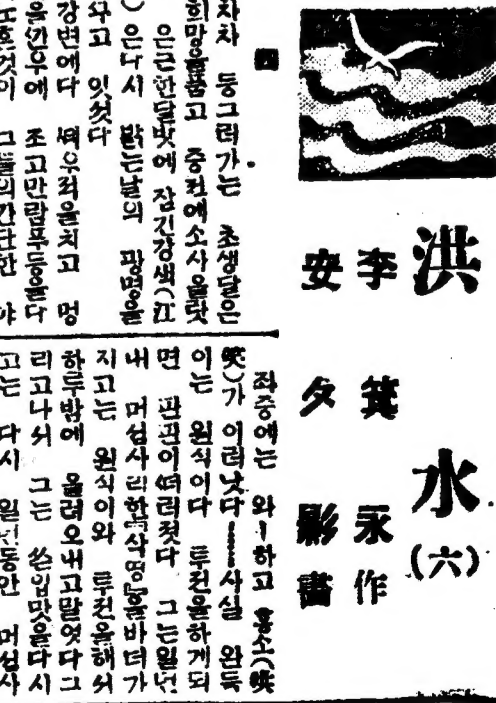 洪水(六)
李箕永作
安夕影畵
四
차차 둥그러가는 초생달은
희망을품고 중천에소사올랏
은근한달빗에 잠긴강색(江
) 은다시 밝는날의 광명을
꾸고 잇섯다
강변에다 우적을치고 멍
을깐우에 조고만람푸등을다
노흔것이 그들의간단한 야
좌중에는 와ㅣ하고 홍소(哄
笑)가 이러낫다━━사실 완득
이는 원식이다 투전을하게되
면 판판이ᄯᅥ러젓다 그는일년
내 머섬사리한 바더가
지고는 원식이와 투전을해서
하루밤에 올려오내고말엇다그
리고나서 그는 쓴입맛을다시
고는 다시 일년동안 머섬사